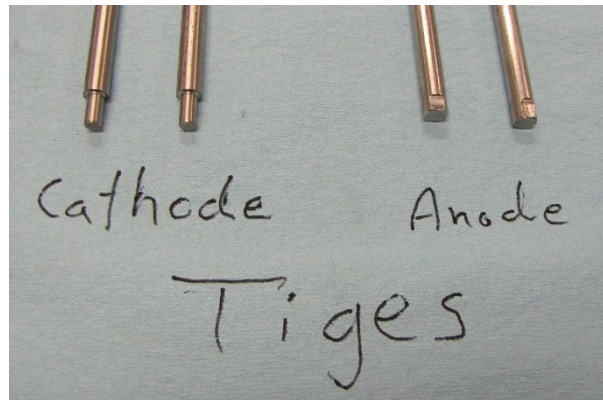 Cathode Anode
Tiges